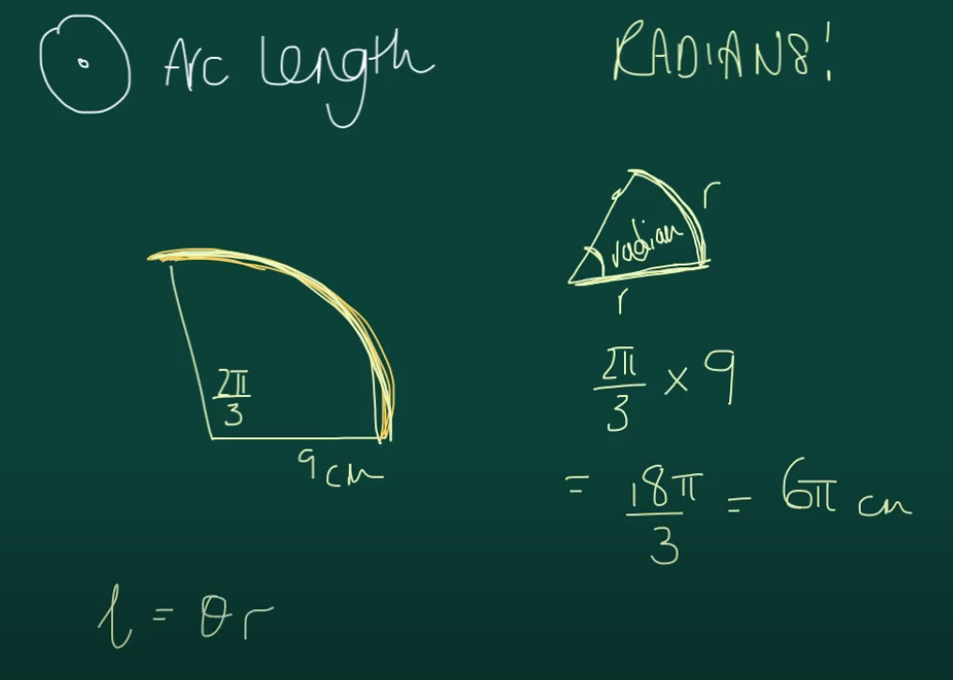 Arc Length
RADIANS!
r
radian
r
2π/3
9cm
2π/3 × 9
= 18π/3 = 6π cm
l = θr